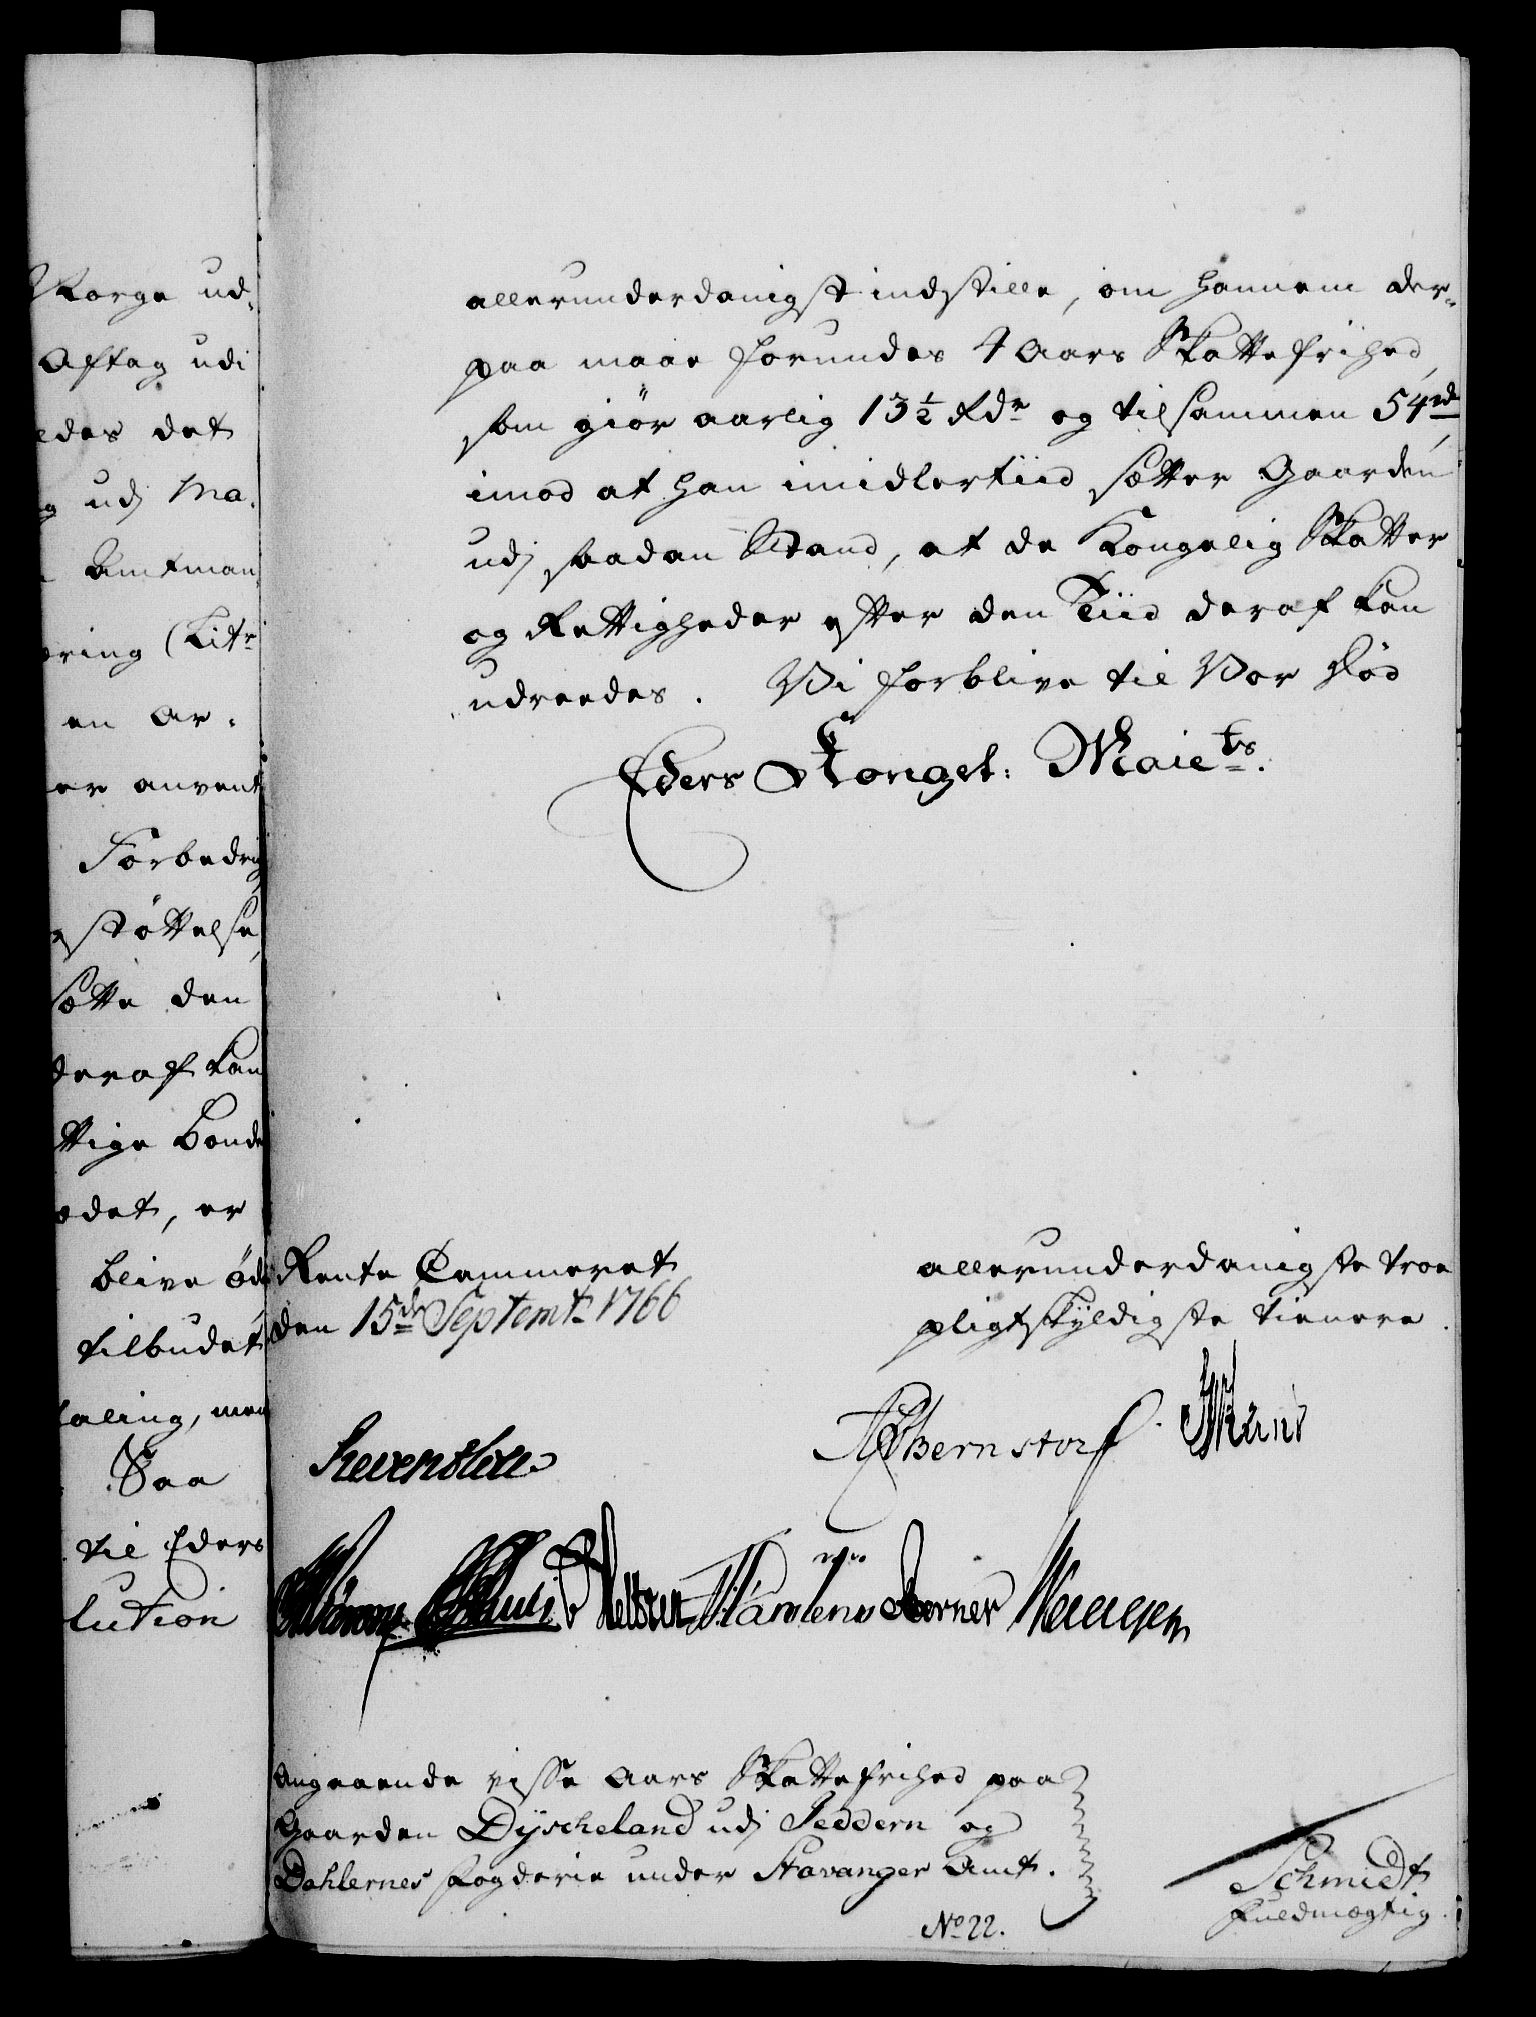 Norge ud-
Aftag udi
ledes det
og udj Ma-
Amtman
æring (Litr
en Ar-
er anvent
Forbedring
støttelse,
sætte den
deraf kan
ttige Bonde
ædet, er
blive øde
tilbudet
taling, men
Saa
til Eders
lution
allerunderdanigst indstille, om hannem der-
paa maae forundes 4 Aars Skatte frihed,
som giör aarlig 13½ Rdr og tilsammen 54 rd,
imod at han imidlertiid sætter Gaarden
udj saadan Stand, at de Kongelig Skatter
og Rettigheder efter den Tiid deraf kan
udreedes. Vi forblive til Vor Död
Eders Kongel: Maiets.
Rente Cammeret
den 15de Septembr 1766
allerunderdanigste troe
pligtskyldigste tienere.
Schmidt
Fuldmægtig.
AP Bernstorf.
Hellsen
Berner
Angaaende visse Aars Skattefrihed paa
Gaarden Dyscheland udj Jeddern og
Dahlernes Fogderie under Stavanger Amt.
No 22.